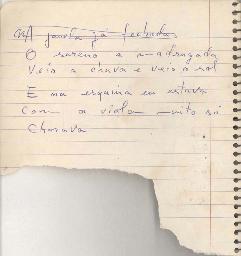 Na janela já fechada
O sereno e a madrugada
Veio a chuva e veio o sol
E na esquina eu estava
Com a viola muito só
Chorava